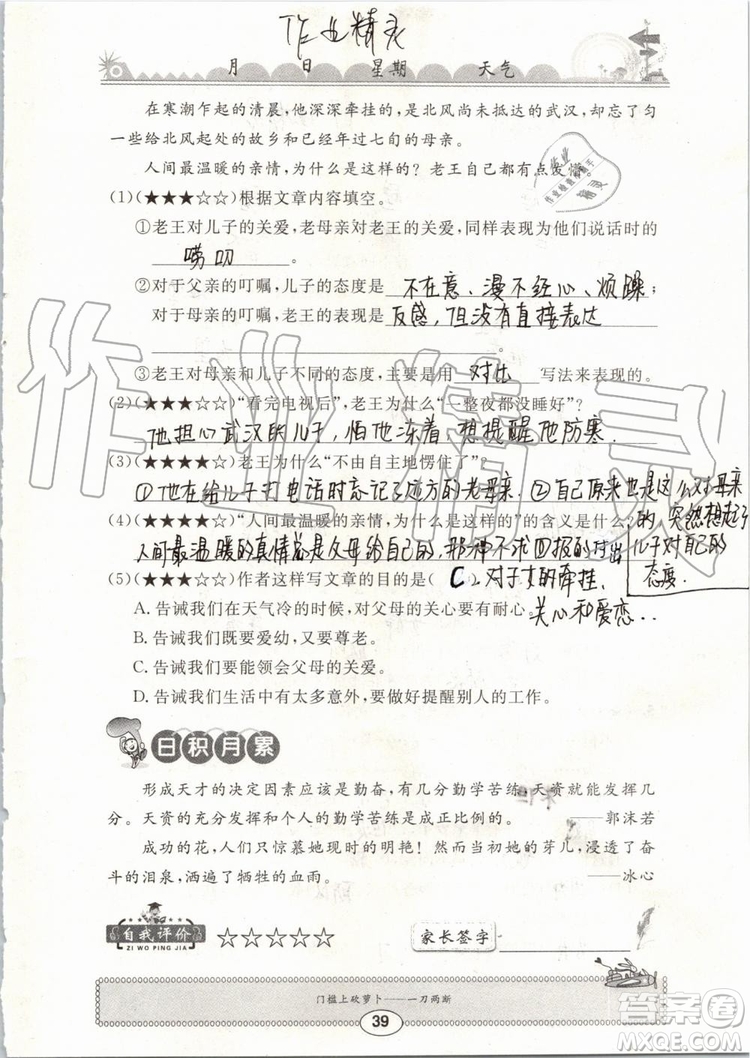 作业精灵
月 日 星期 天气
在寒潮乍起的清晨，他深深牵挂的，是北风尚未抵达的武汉，却忘了匀
一些给北风起处的故乡和已经年过七旬的母亲。
人间最温暖的亲情，为什么是这样的？老王自己都有点发懵。
(1)(★★★☆☆)根据文章内容填空。
①老王对儿子的关爱，老母亲对老王的关爱，同样表现为他们说话时的
唠叨。
②对于父亲的叮嘱，儿子的态度是 不在意、漫不经心、烦躁；
对于母亲的叮嘱，老王的表现是 反感，但没有直接表达
。
③老王对母亲和儿子不同的态度，主要是用 对比 写法来表现的。
(2)(★★★☆☆)“看完电视后”，老王为什么“一整夜都没睡好”？
他担心武汉的儿子，怕他冻着，想提醒他防寒
(3)(★★★★☆)老王为什么“不由自主地愣住了”？
①他在给儿子打电话时忘记了远方的老母亲，②自己原来也是这么对母亲
的，突然想起了
儿子对自己的
态度．
(4)(★★★★☆)“人间最温暖的亲情，为什么是这样的”的含义是什么？
人间最温暖的真情总是父母给自己的，那种不求回报的付出
，对子女的牵挂，
关心和爱恋…
(5)(★★★☆☆)作者这样写文章的目的是( C )。
A. 告诫我们在天气冷的时候，对父母的关心要有耐心。
B. 告诫我们既要爱幼，又要尊老。
C. 告诫我们要能领会父母的关爱。
D. 告诫我们生活中有太多意外，要做好提醒别人的工作。
日积月累
形成天才的决定因素应该是勤奋，有几分勤学苦练，天资就能发挥几
分。天资的充分发挥和个人的勤学苦练是成正比例的。——郭沫若
成功的花，人们只惊慕她现时的明艳！然而当初她的芽儿，浸透了奋
斗的泪泉，洒遍了牺牲的血雨。——冰心
自我评价 ☆☆☆☆☆ 家长签字
ZI WO PING JIA
门槛上砍萝卜——一刀两断
39
作业精灵
答案圈
MXQE.COM